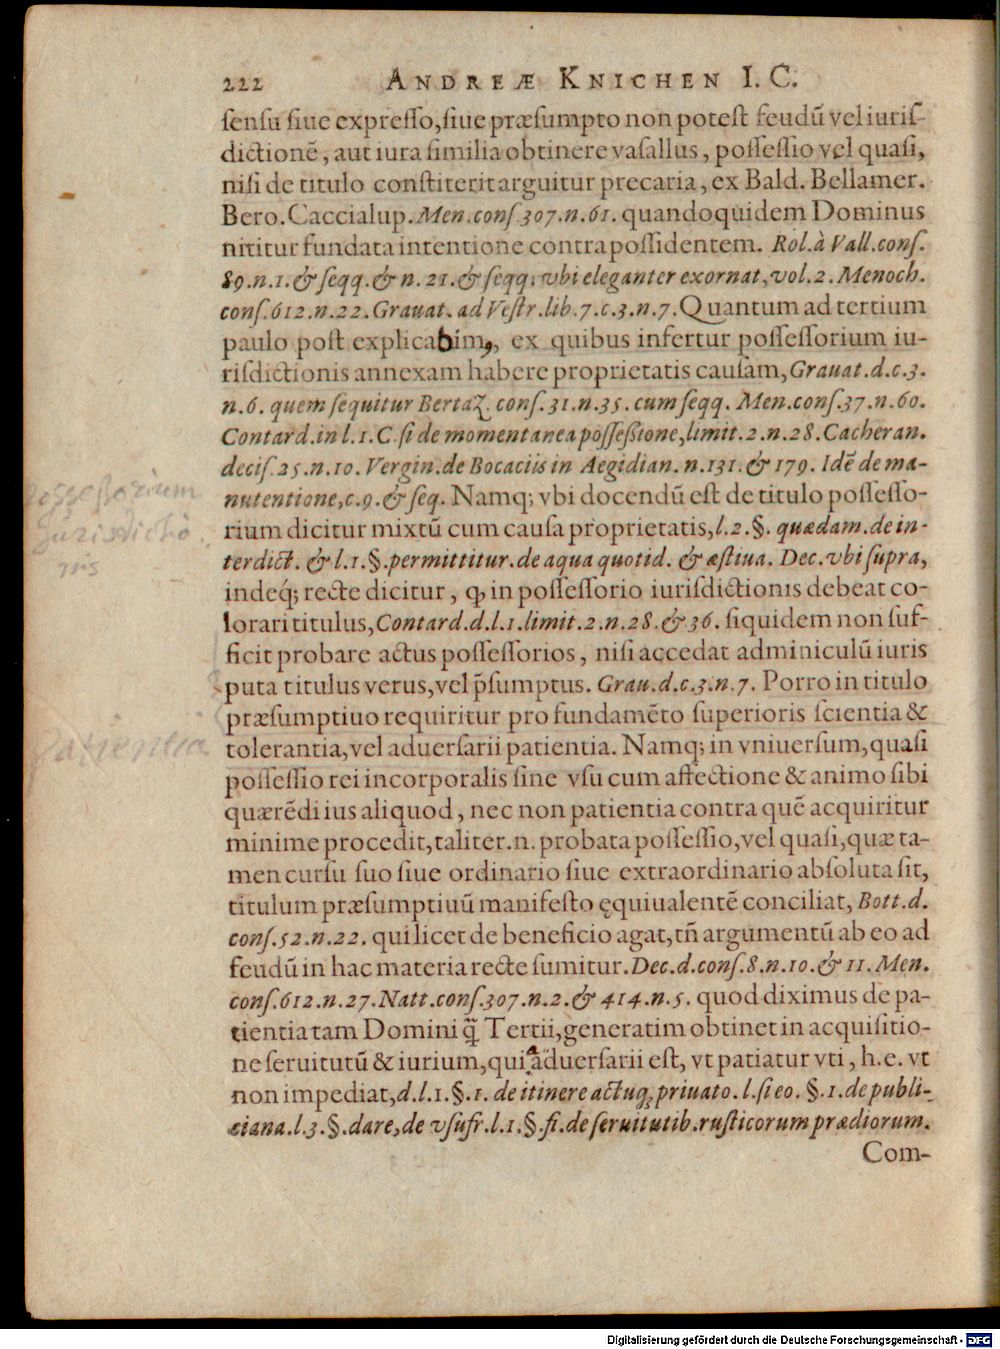 222 ANDREÆ KNICHEN I. C.
ſenſu ſiue expreſſo, ſiue præſumpto non poteſt feudũ vel iuriſ-
dictionẽ, aut iura ſimilia obtinere vaſallus, poſſeſſio vel quaſi,
niſi de titulo conſtiterit arguitur precaria, ex Bald. Bellamer.
Bero. Caccialup. Men. conſ. 307. n. 61. quandoquidem Dominus
nititur fundata intentione contra poſſidentem. Rol. à Vall. conſ.
89. n. 1. & ſeqq. & n. 21. & ſeqq. vbi eleganter exornat, vol. 2. Menoch.
conſ. 612. n. 22. Grauat. ad Veſtr. lib. 7. c. 3. n. 7. Quantum ad tertium
paulo poſt explicabimꝰ, ex quibus infertur poſſeſſorium iu-
riſdictionis annexam habere proprietatis cauſam, Grauat. d. c. 3.
n. 6. quem ſequitur Bertaz. conſ. 31. n. 35. cum ſeqq. Men. conſ. 37. n. 60.
Contard. in l. 1. C. ſi de momentanea poſſeßione, limit. 2. n. 28. Cacheran.
deciſ. 25. n. 10. Vergin. de Bocaciis in Aegidian. n. 131. & 179. Idẽ de ma-
nutentione, c. 9. & ſeq. Namq; vbi docendũ eſt de titulo poſſeſſo-
rium dicitur mixtũ cum cauſa proprietatis, l. 2. §. quædam. de in-
terdict. & l. 1. §. permittitur. de aqua quotid. & æſtiua. Dec. vbi ſupra,
indeq́; recte dicitur, ꝙ in poſſeſſorio iuriſdictionis debeat co-
lorari titulus, Contard. d. l. 1. limit. 2. n. 28. & 36. ſiquidem non ſuf-
ficit probare actus poſſeſſorios, niſi accedat adminiculũ iuris
puta titulus verus, vel p̃ſumptus. Grau. d. c. 3. n. 7. Porro in titulo
præſumptiuo requiritur pro fundamẽto ſuperioris ſcientia &
tolerantia, vel aduerſarii patientia. Namq; in vniuerſum, quaſi
poſſeſſio rei incorporalis ſine vſu cum affectione & animo ſibi
quærẽdi ius aliquod, nec non patientia contra quẽ acquiritur
minime procedit, taliter. n. probata poſſeſſio, vel quaſi, quæ ta-
men curſu ſuo ſiue ordinario ſiue extraordinario abſoluta ſit,
titulum præſumptiuũ manifeſto ęquiualentẽ conciliat, Bott. d.
conſ. 52. n. 22. qui licet de beneficio agat, tñ argumentũ ab eo ad
feudũ in hac materia recte ſumitur. Dec. d. conſ. 8. n. 10. & 11. Men.
conſ. 612. n. 27. Natt. conſ. 307. n. 2. & 414. n. 5. quod diximus de pa-
tientia tam Domini q̃ Tertii, generatim obtinet in acquiſitio-
ne ſeruitutũ & iurium, qui aduerſarii eſt, vt patiatur vti, h. e. vt
non impediat, d. l. 1. §. 1. de itinere actuq; priuato. l. ſi eo. §. 1. de publi-
ciana. l. 3. §. dare, de vſufr. l. 1. §. fi. de ſeruitutib. ruſticorum prædiorum.
Com-
Possessorium
Jurisdictio
nis
Patientia
Digitalisierung gefördert durch die Deutsche Forschungsgemeinschaft - DFG